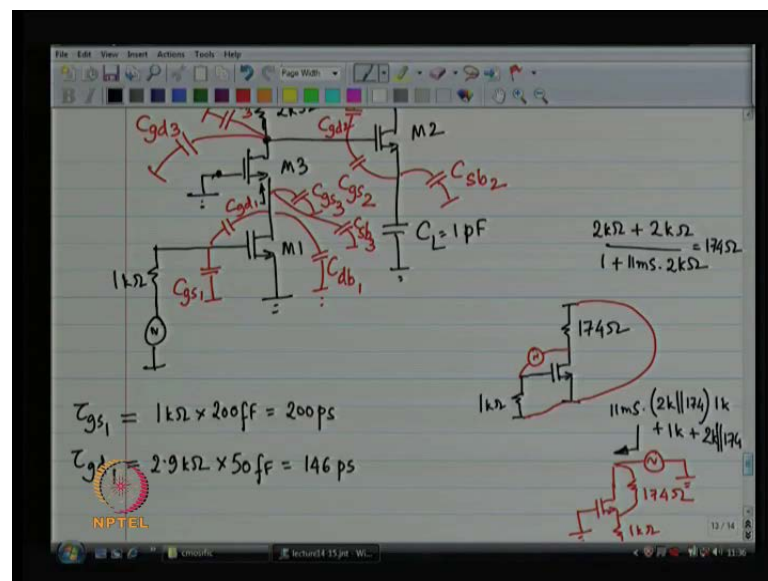 File Edit View Insert Actions Tools Help
Page Width
Cgd3
3
2kΩ
Cgd2
M2
M3
Cgd1
Cgs3
Cgs2
Csb2
Csb3
CL = 1pF
M1
1kΩ
Cgs1
Cdb1
N
2kΩ + 2kΩ
1 + 11mS. 2kΩ
= 174Ω
N
174Ω
1kΩ
11mS. (2k||174) 1k
+ 1k + 2k||174
N
174Ω
1kΩ
τgs1 = 1kΩ × 200fF = 200ps
τgd1 = 2.9kΩ × 50fF = 146 ps
NPTEL
13 / 14
cmosrfic
lecture14-15.jnt - Wi...
11:36